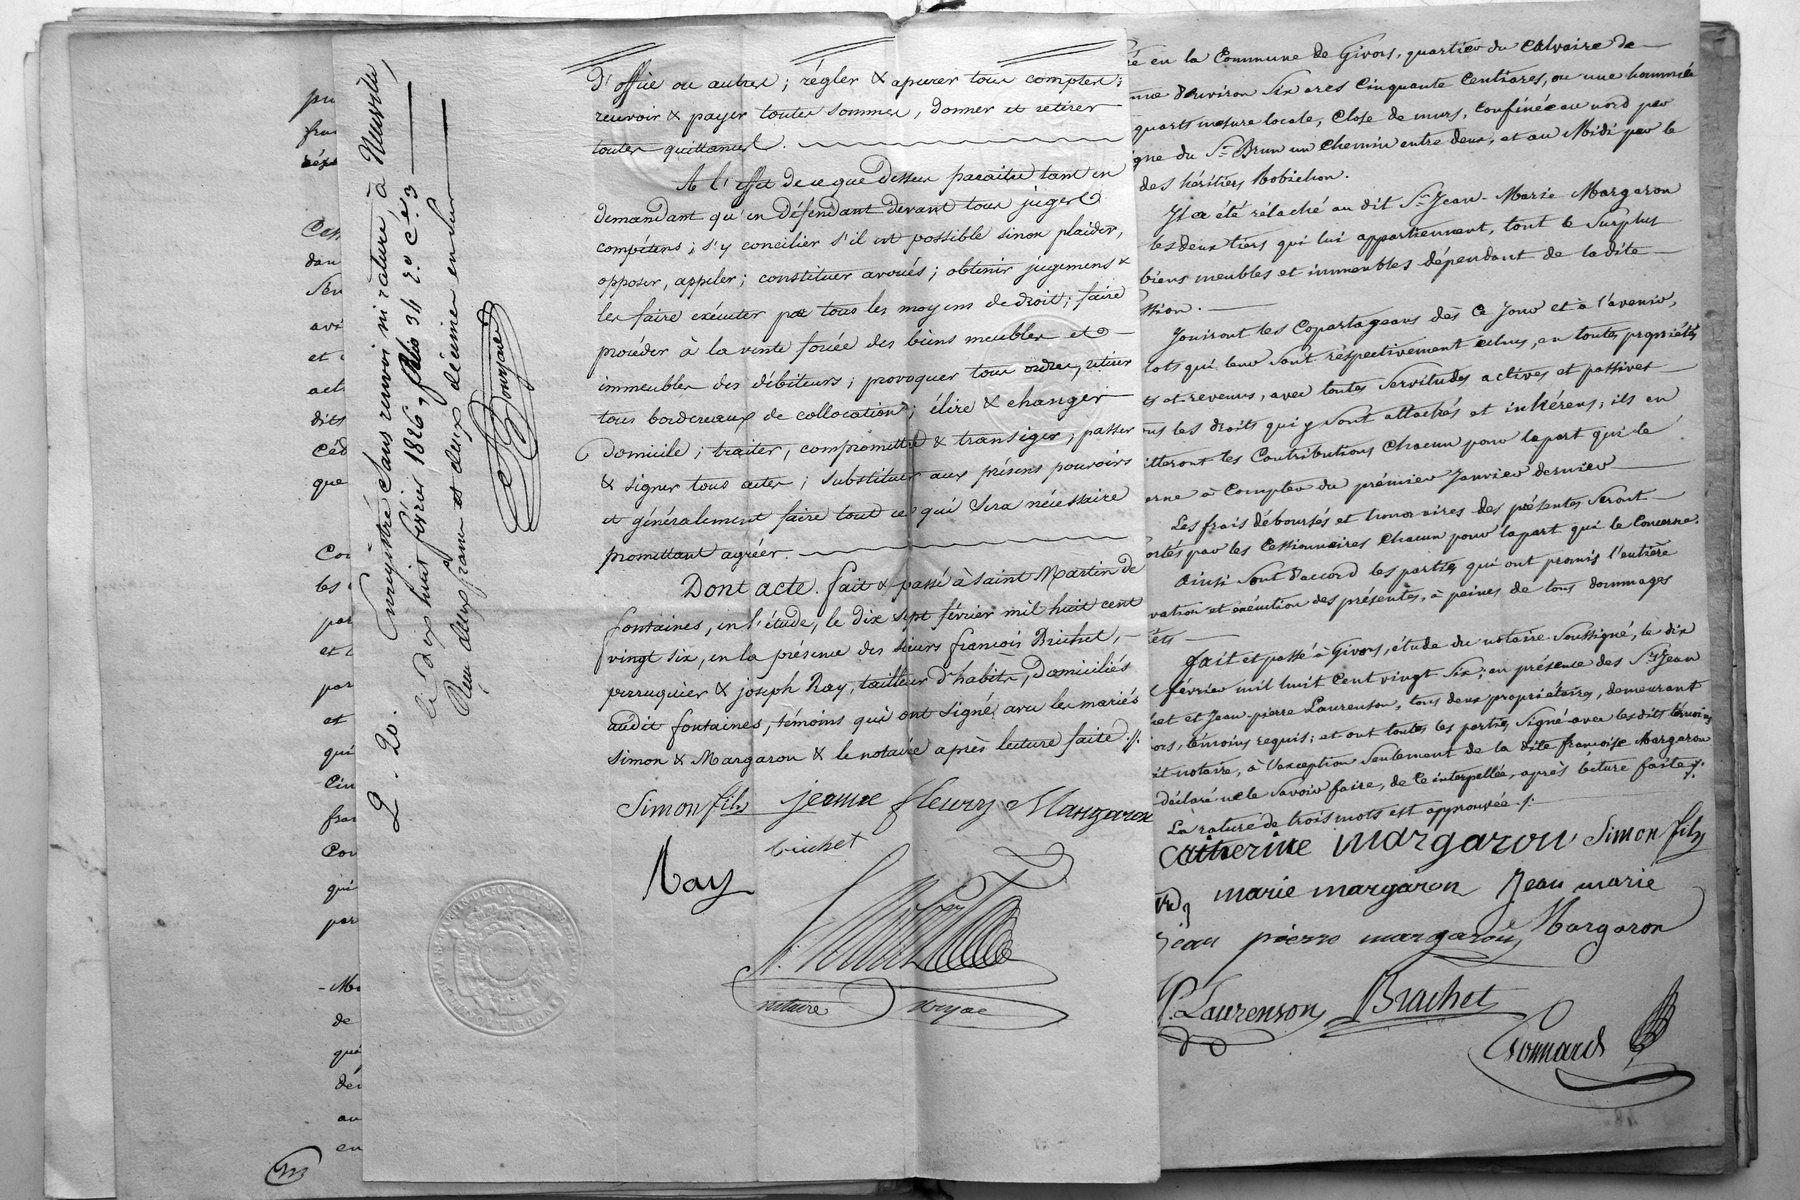 pu
fra
Cen
dan
avi
et
act
dits
Céd
que
Cou
les
par
et
par
et
qui
Cin
fran
Cou
qui
par
de
qu
dé
au
en
Enregistré sans renvoi ni rature, à Neuville,
le dix huit février 1826, folio 34 r.o c.e 3
Reçu deux francs et deux décime en sus
2. 20.
d'office ou autres ; régler & apurer tous comptes ;
recevoir & payer toutes sommes, donner et retirer
toutes quittances.
A l'effet de ce que dessus paraitre tant en
demandant qu'en défendant devant tous juges
compétens ; s'y concilier s'il est possible sinon plaider,
opposer, appeler ; constituer avoués ; obtenir jugemens &
les faire exécuter par tous les moyens de droit ; faire
procéder à la vente forcée des biens meubles et
immeubles des débiteurs ; provoquer tous ordres, retirer
tous bordereaux de collocation ; élire & changer
domicile ; traiter, compromettre & transiger ; passer
& signer tous actes ; substituer aux présens pouvoirs
et généralement faire tout ce qui sera nécessaire
promettant agréer.
Dont acte. fait & passé à saint Martin de
fontaines, en l'étude, le dix sept février mil huit cent
vingt six, en la présence des sieurs françois Brichet,
perruquier & joseph Ray, tailleur d'habits, domiciliés
audit fontaines, témoins qui ont signé avec les mariés
Simon & Margaron & le notaire après lecture faite ./.
Simon fils jeanne fleurry Margaron
brichet
Ray
notaire
en la Commune de Givors, quartier du Calvaire de
d'environ Six ares Cinquante Centiares, ou une hommée
quarts mesure locale, Close de murs, Confinée au nord par
du Sr Brun un Chemin entre deux, et au Midi par le
des héritiers Robichon.
Il a été rélaché au dit Sr Jean-Marie Margaron
les deux tiers qui lui appartiennent, tout le Surplus
biens meubles et immeubles dépendant de la dite
Jouiront les Copartageans dès Ce jour et à l'avenir,
lots qui leur sont réspectivement échus, en toutes propriétés
et revenus, avec toutes Servitudes actives et passives
les droits qui y sont attachés et inhérens, ils en
les Contributions Chacun pour la part qui le
à Compter du prémier Janvier dernier
Les frais déboursés et honoraires des présentes Seront
par les Cessionnaires Chacun pour la part qui le Concerne.
Ainsi Sont d'accord les parties qui ont promis l'entière
et exécution des présentes, à peines de tous dommages
fait et passé à Givors, étude du notaire Soussigné, le dix
février mil huit Cent vingt Six, en présence des Srs Jean
et Jean-pierre Laurenson, tous deux propriétaires, demeurant
témoins requis ; et ont toutes les parties Signé avec les dits témoins
notaire, à l'exception Seulement de la dite françoise Margaron
déclaré ne le Savoir faire, de Ce interpellée, après lecture faite ./.
La rature de trois mots est approuvée ./.
Catherine margaron Simon fils
marie margaron Jean marie
Jean pierre margaron Margaron
P. Laurenson Brachet